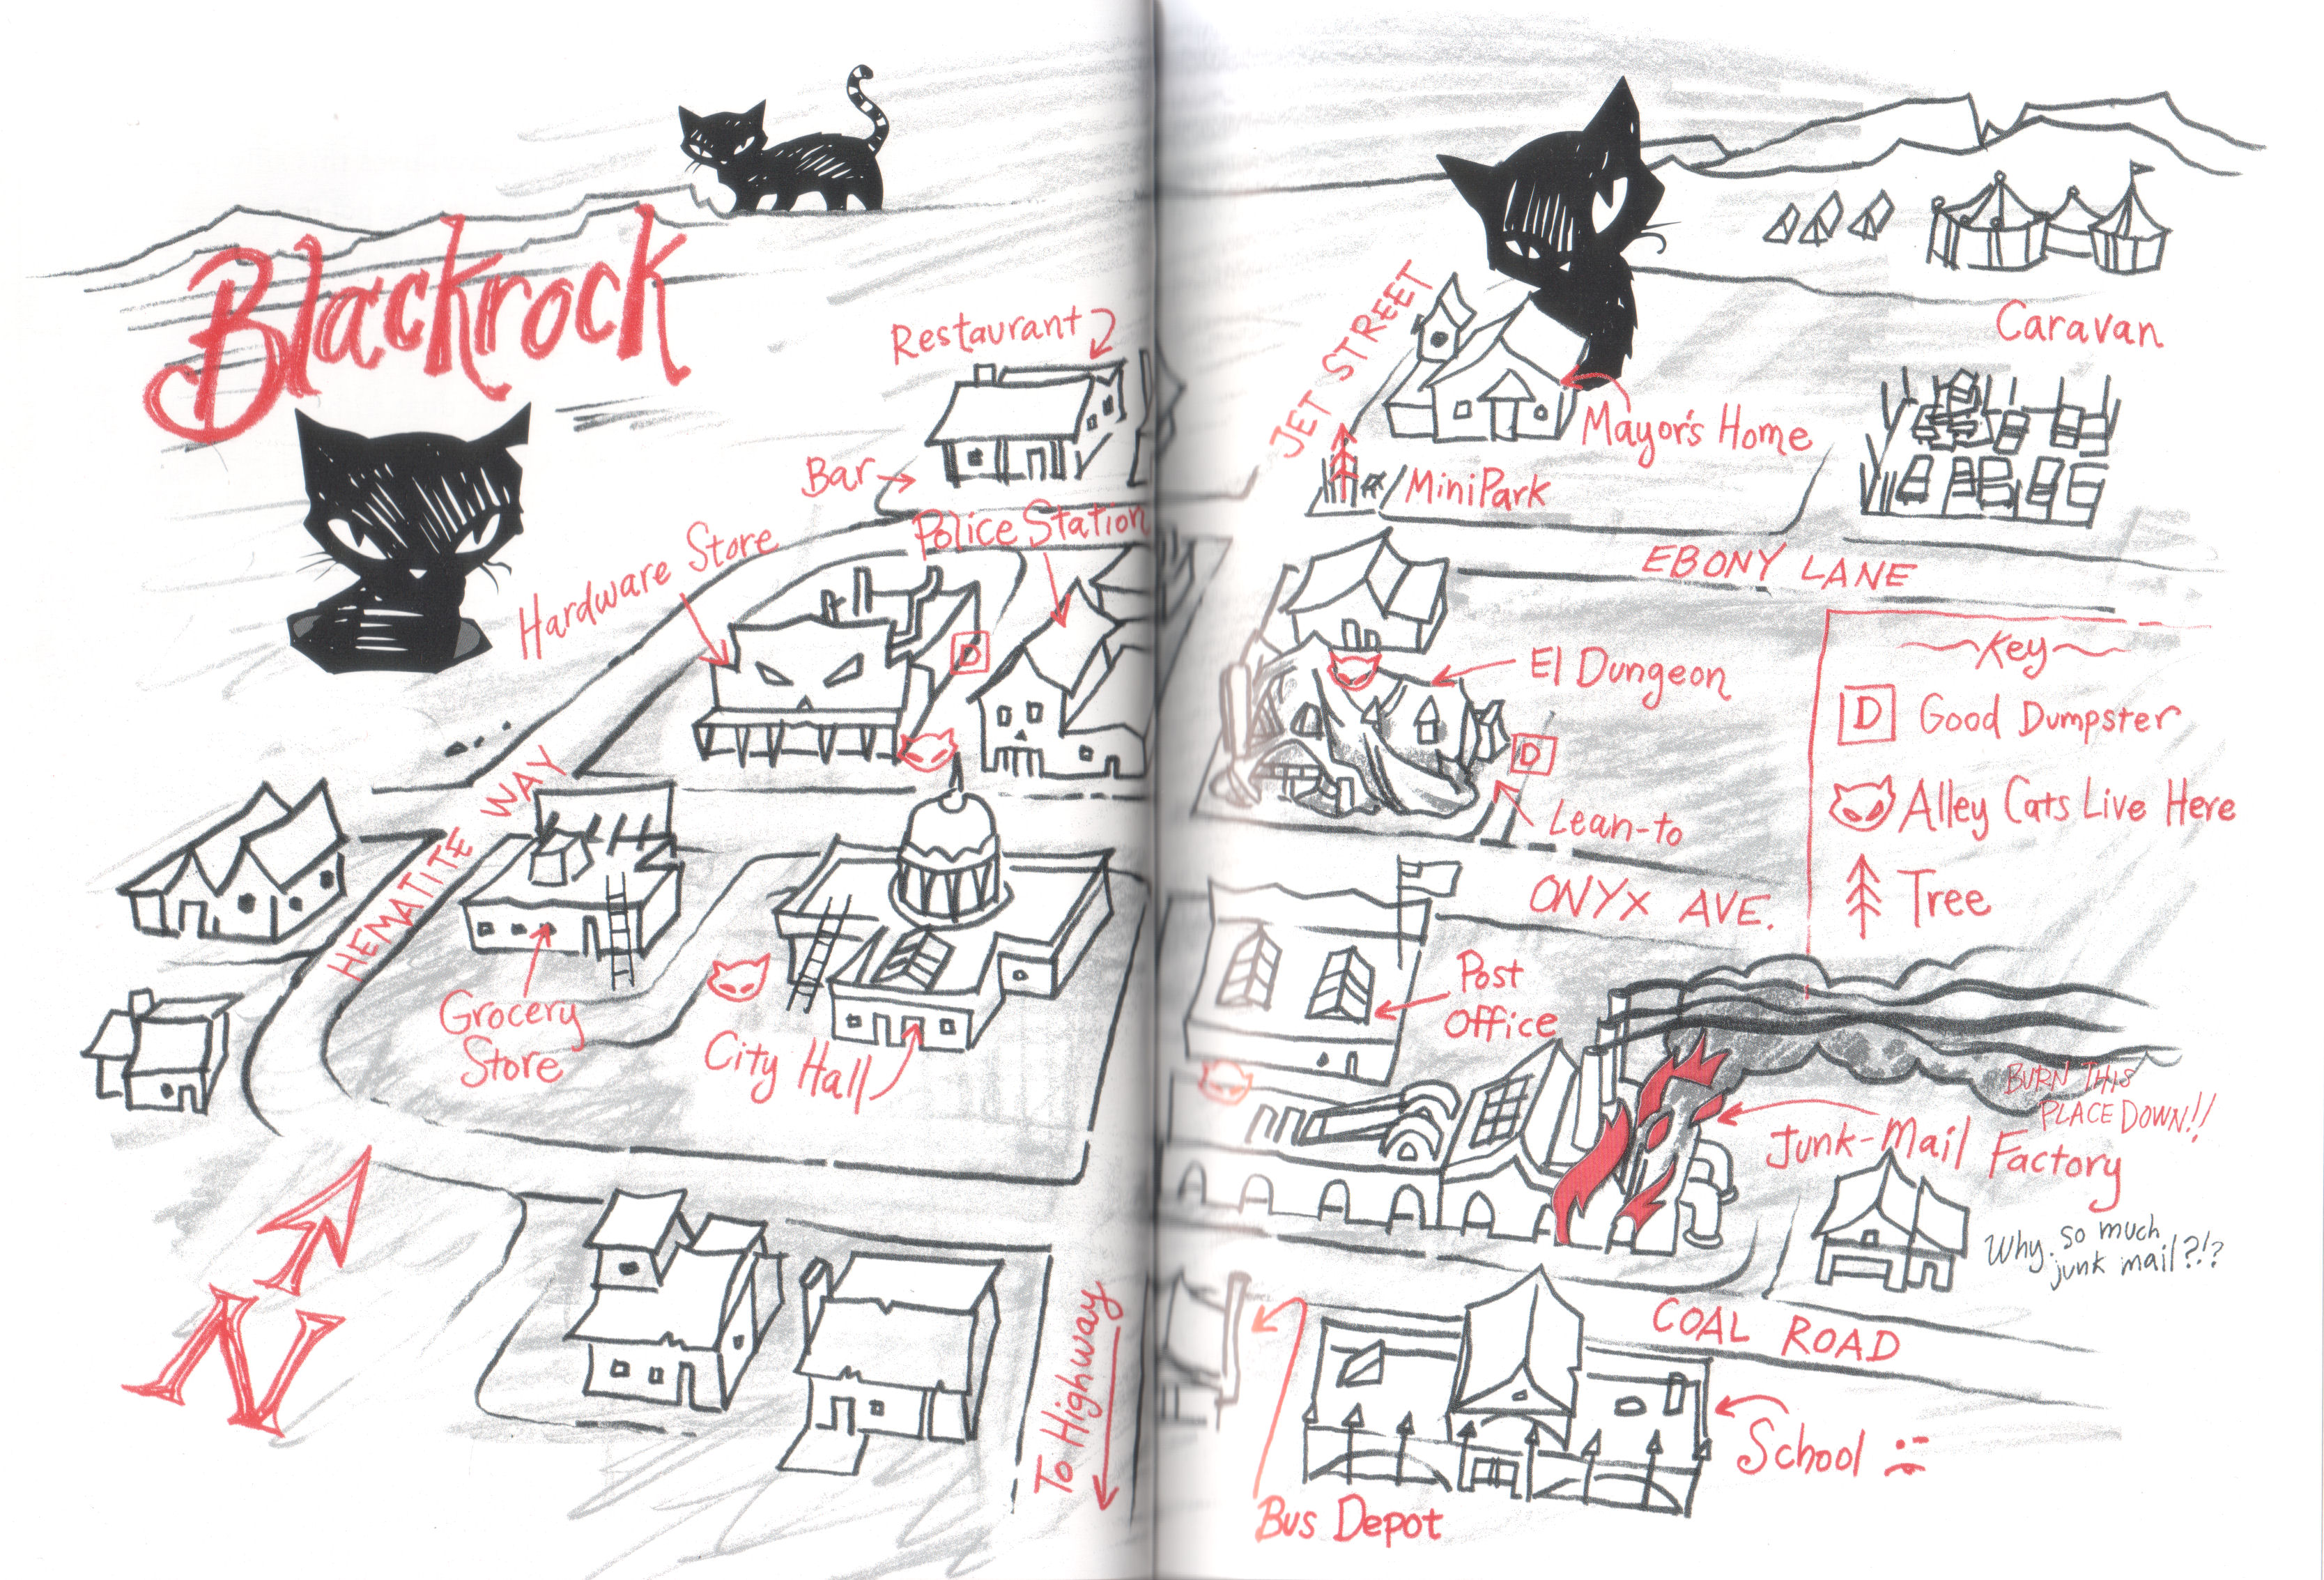 Blackrock
Restaurant
Bar
Police Station
Hardware Store
D
HEMATITE WAY
Grocery
Store
City Hall
N
To Highway
JET STREET
Mayor's Home
MiniPark
Caravan
EBONY LANE
El Dungeon
D
Lean-to
ONYX AVE.
Key
D Good Dumpster
Alley Cats Live Here
Tree
Post
Office
BURN THIS
PLACE DOWN!!
Junk-Mail Factory
Why so much
junk mail?!?
COAL ROAD
School
Bus Depot